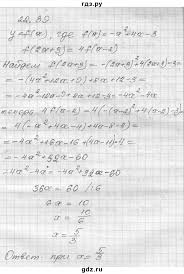 22.39
y = f(x), где f(x) = -x²+4x-3
f(2a+3) = 4f(a-2)
Найдем f(2a+3) = -(2a+3)²+4(2a+3)-3 =
= -(4a²+12a+9)+8a+12-3 =
= -4a²-12a-9+8a+12-3 = -4a²-4a
4f(a-2) = 4(-(a-2)²+4(a-2)-3) =
= 4(-a²+4a-4+4a-8-3) =
= -4a²+16a-16+
= -4a²+32a-60
-4a²-4a = -4a²+32a-60
36a = 60 /:6
6a = 10
a = 10/6
a = 5/3
Ответ: при a = 5/3
gdz.ru